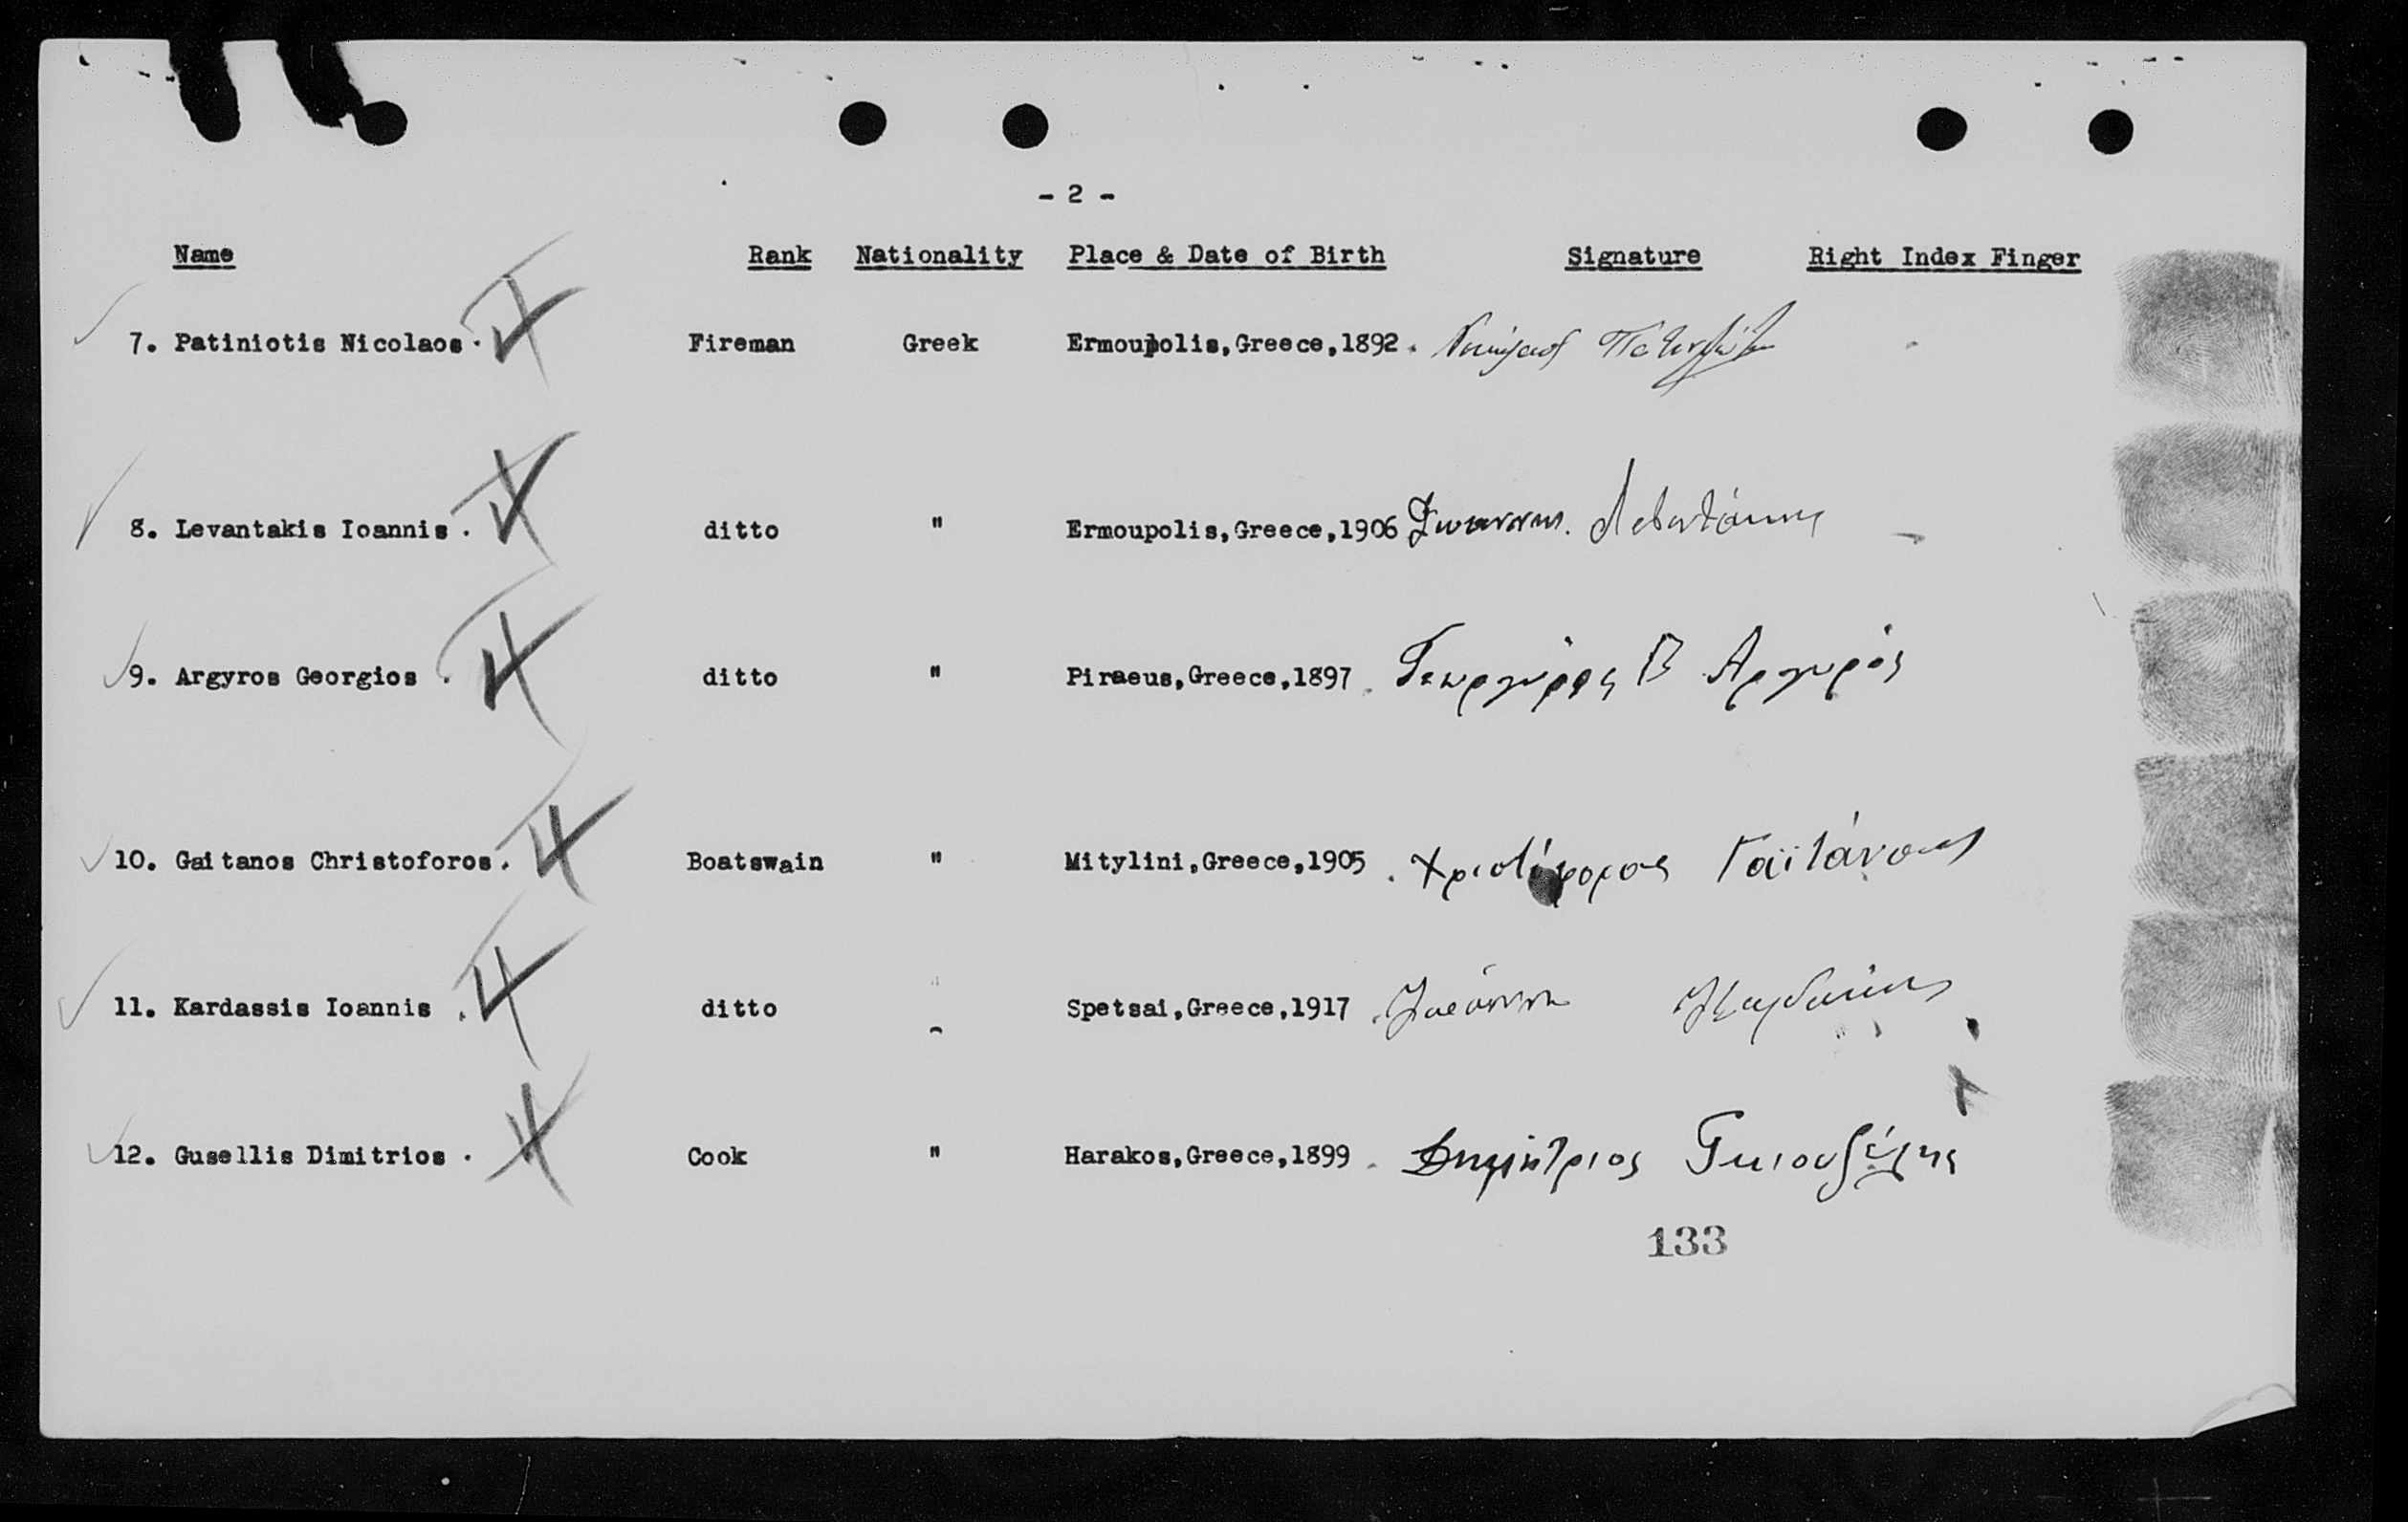 - 2 -
Name Rank Nationality Place & Date of Birth Signature Right Index Finger
7. Patiniotis Nicolaos. Fireman Greek Ermoupolis,Greece,1892. Νικόλαος
8. Levantakis Ioannis. ditto " Ermoupolis,Greece,1906 Ιωαννης. Λεβαντάκης
9. Argyros Georgios. ditto " Piraeus,Greece,1897. Β Αργυρός
10. Gaitanos Christoforos. Boatswain " Mitylini,Greece,1905. Χριστόφορος Γαϊτάνος
11. Kardassis Ioannis. ditto " Spetsai,Greece,1917.
12. Gusellis Dimitrios. Cook " Harakos,Greece,1899. Δημήτριος Γκιουζέλης
133